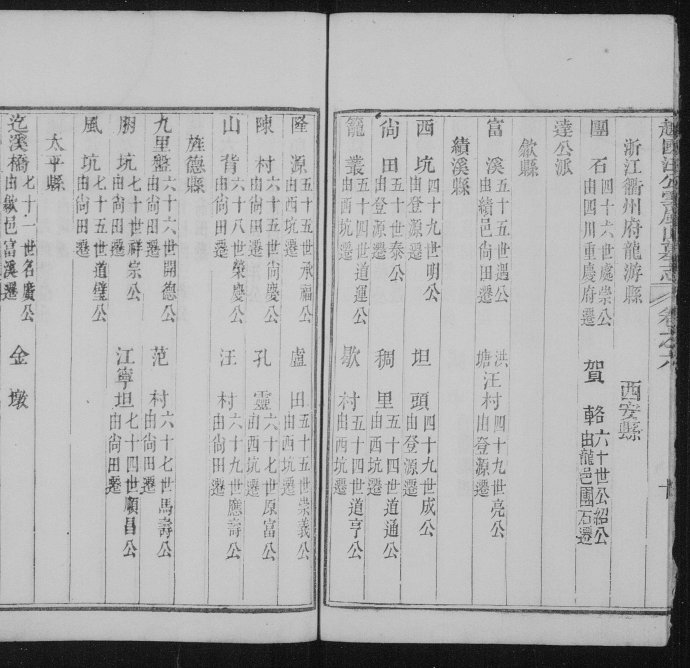 越國汪公雲嵐山墓志 卷之六 十
浙江衢州府龍游縣 西安縣
團石 四十六世處崇公 由四川重慶府遷 賀輅 六十世公紹公 由龍邑團石遷
達公派
歙縣
富溪 五十五世遇公 由績邑尚田遷 洪塘汪村 四十九世亮公 由登源遷
績溪縣
西坑 四十九世明公 由登源遷 坦頭 四十九世成公 由登源遷
尙田 五十世泰公 由登源遷 稠里 五十四世道通公 由西坑遷
籠叢 五十四世道運公 由西坑遷 歇村 五十四世道亨公 由西坑遷
隆源 五十五世承福公 由西坑遷 盧田 五十五世崇義公 由西坑遷
陳村 六十五世尚慶公 由尙田遷 孔靈 六十七世原富公 由西坑遷
山背 六十八世榮慶公 由尙田遷 汪村 六十九世應壽公 由尙田遷
旌德縣
九里盤 六十六世開德公 由尙田遷 范村 六十七世馬壽公 由尙田遷
朋坑 七十世祥宗公 由尙田遷 江寧坦 七十四世順昌公 由尙田遷
風坑 七十五世道璧公 由尙田遷
太平縣
迄溪橋 七十一世名廣公 由歙邑富溪遷 金墩